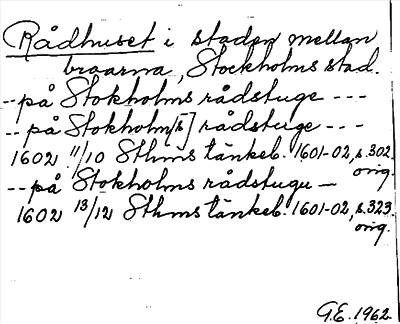 Rådhuset i staden mellan
broarna, Stockholms stad.
-- på Stokholms rådstuge ---
-- på Stokholm[s] rådstuge ---
1602 11/10 Sthms tänkeb. 1601-02, s. 302.
orig.
-- på Stokholms rådstugu --
1602 13/12 Sthms tänkeb. 1601-02, s. 323.
orig.
G.E. 1962.